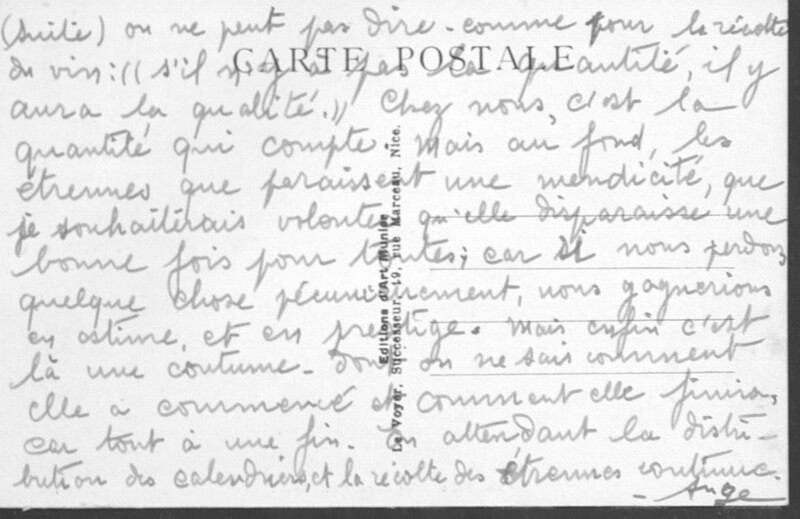 (suite) on ne peut pas dire - comme pour la récolte
CARTE POSTALE
du vin: (( s'il n'y a pas la quantité, il y
aura la qualité.)) Chez nous, c'est la
quantité qui compte. Mais au fond, les
étrennes que paraissent une mendicité, que
je souhaiterais volontes qu'elle disparaisse une
bonne fois pour toutes; car si nous perdons
quelque chose pécuniairement, nous gagnerions
en estime, et en prestige. Mais enfin c'est
là une coutume - dont on ne sait comment
elle a commencé et comment elle finira,
car tout à une fin. En attendant la distri-
bution des calendriers, et la récolte des étrennes continue.
- Ange
Editions d'Art Munier
Le Voyer, Successeur, 19, rue Marceau, Nice.